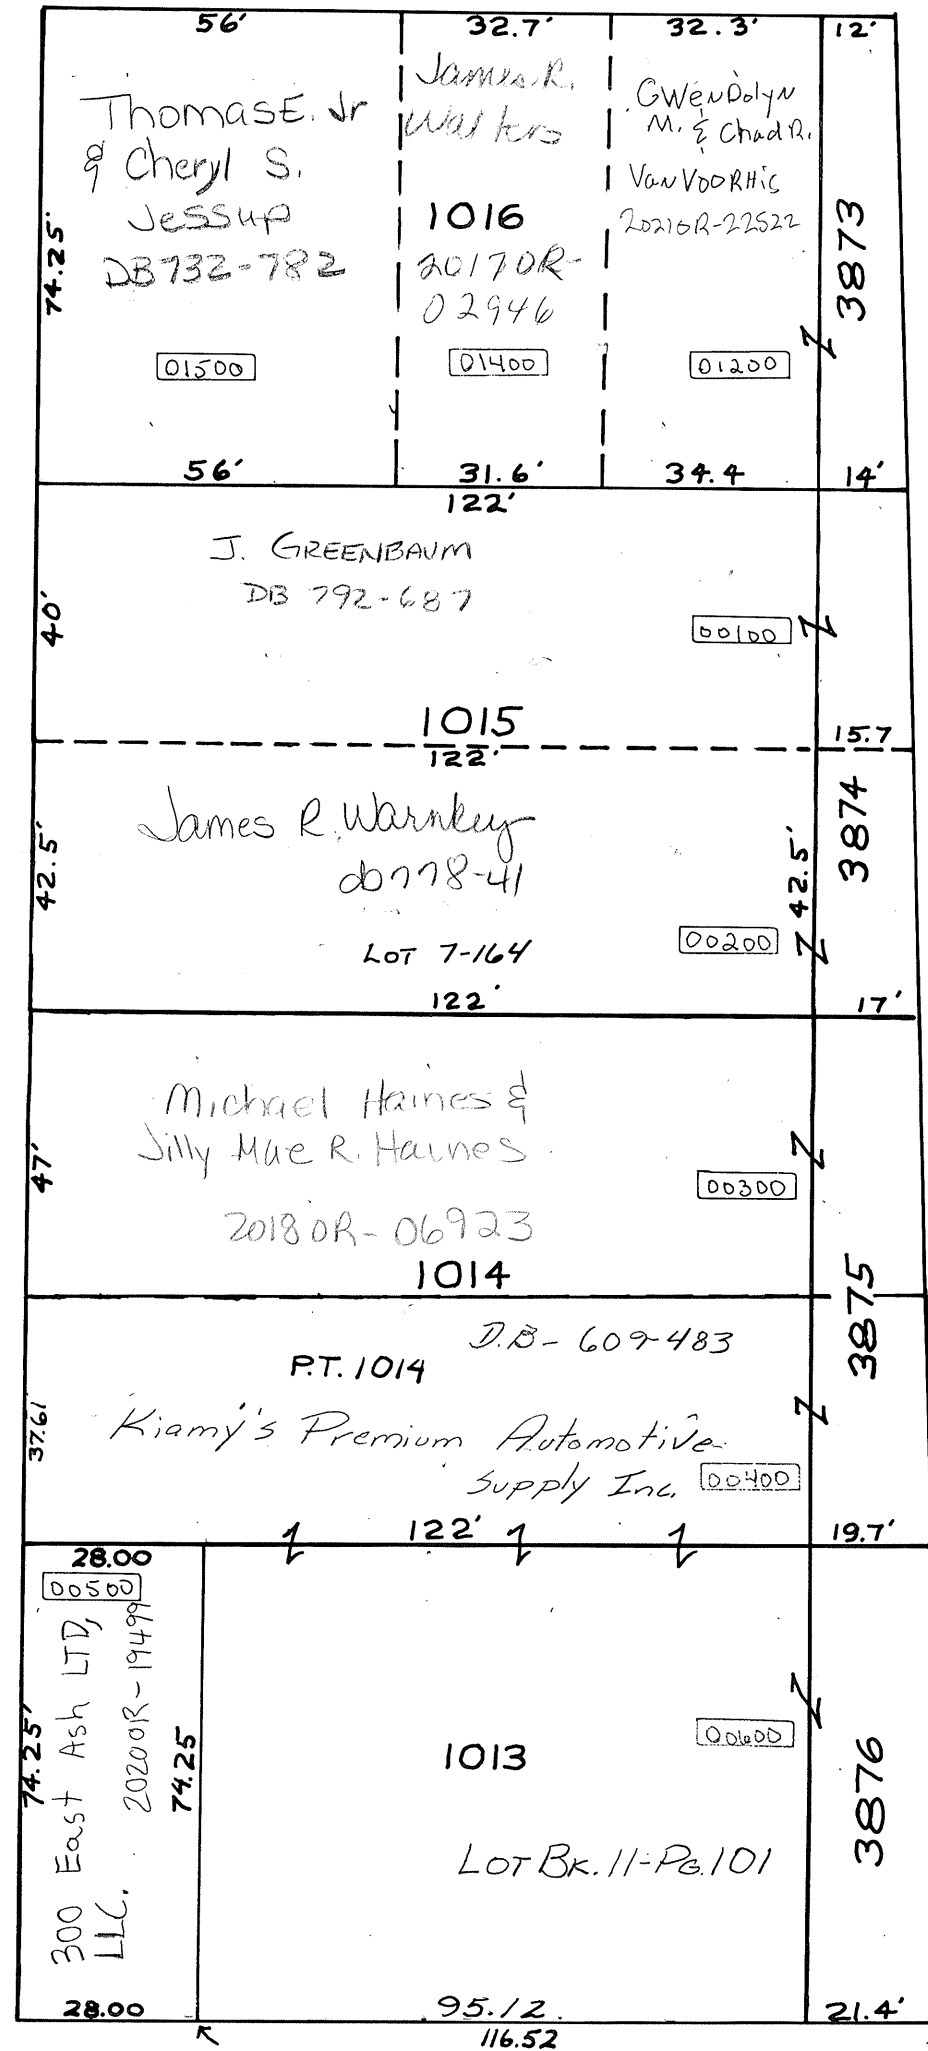 56' 32.7' 32.3' 12'
Thomas E. Jr
& Cheryl S.
Jessup
DB 732-782
74.25'
01500
James R.
Walters
1016
2017OR-
02946
01400
GWENDolyn
M. & Chad R.
VanVOORHis
2021OR-22522
01200
3873
56' 31.6' 34.4 14'
122'
J. GREENBAUM
DB 792-687
40'
00100
1015
122' 15.7
James R. Warnkey
db778-41
42.5'
LOT 7-164
00200
42.5'
3874
122' 17'
Michael Haines &
Jilly Mae R. Haines
47'
00300
2018OR-06923
1014
3875
D.B- 609-483
P.T. 1014
37.61
Kiamy's Premium Automotive
Supply Inc.
00400
122' 19.7'
28.00
00500
300 East Ash LTD,
LLC.
2020OR-19499
74.25'
74.25
00600
1013
3876
LOT BK. 11-PG. 101
28.00 95.12 21.4'
116.52